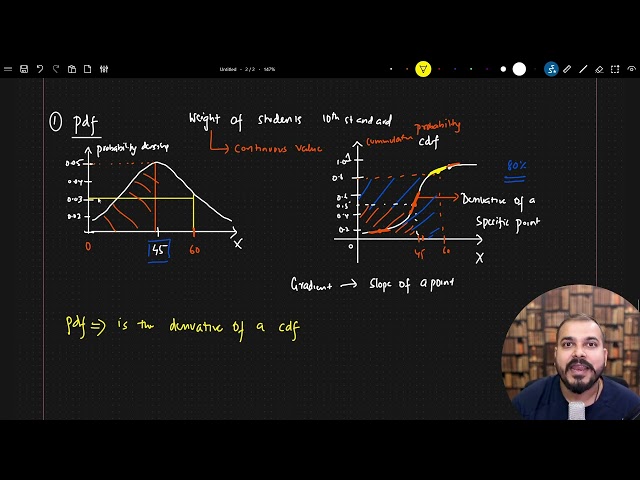 Untitled - 2 / 2 • 147%
① Pdf
Weight of students 10th standard
probability density
Continuous value
cummulative probability
cdf
80%
0.05
0.04
0.03
0.02
0
45
60
X
1.0
0.8
0.6
0.5
0.4
0.2
0
45
60
X
Derivative of a
Specific point
Gradient → Slope of a point
Pdf ⇒ is the derivative of a cdf